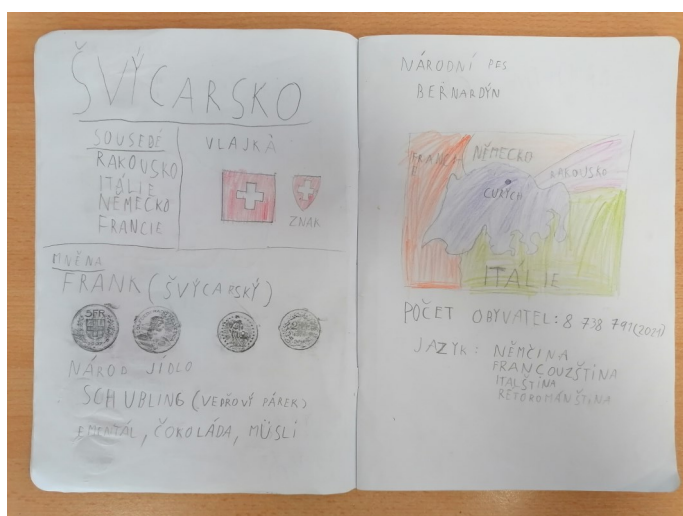 ŠVÝCARSKO
SOUSEDÉ
RAKOUSKO
ITÁLIE
NĚMECKO
FRANCIE
VLAJKA
ZNAK
MNĚNA
FRANK (ŠVÝCARSKÝ)
SFR
NÁROD JÍDLO
SCHUBLING (VEPŘOVÝ PÁREK)
EMENTÁL, ČOKOLÁDA, MÜSLI
NÁRODNÍ PES
BERNARDÝN
FRANCI-
E
NĚMECKO
RAKOUSKO
CURYCH
ITÁLIE
POČET OBYVATEL: 8 738 791 (2021)
JAZYK: NĚMČINA
FRANCOUZŠTINA
ITALŠTINA
RÉTOROMÁNŠTINA